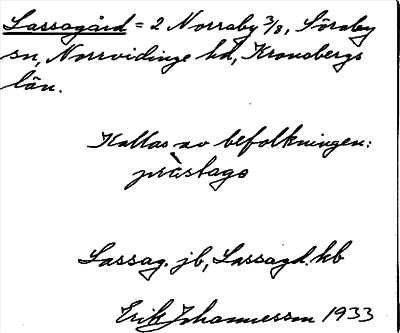 Lassagård = 2 Norraby 3/8, Söraby
sn, Norrvidinge hd, Kronobergs
län.
Kallas av befolkningen:
Lassag. jb, Lassagd. kb
Erik Johannesson 1933